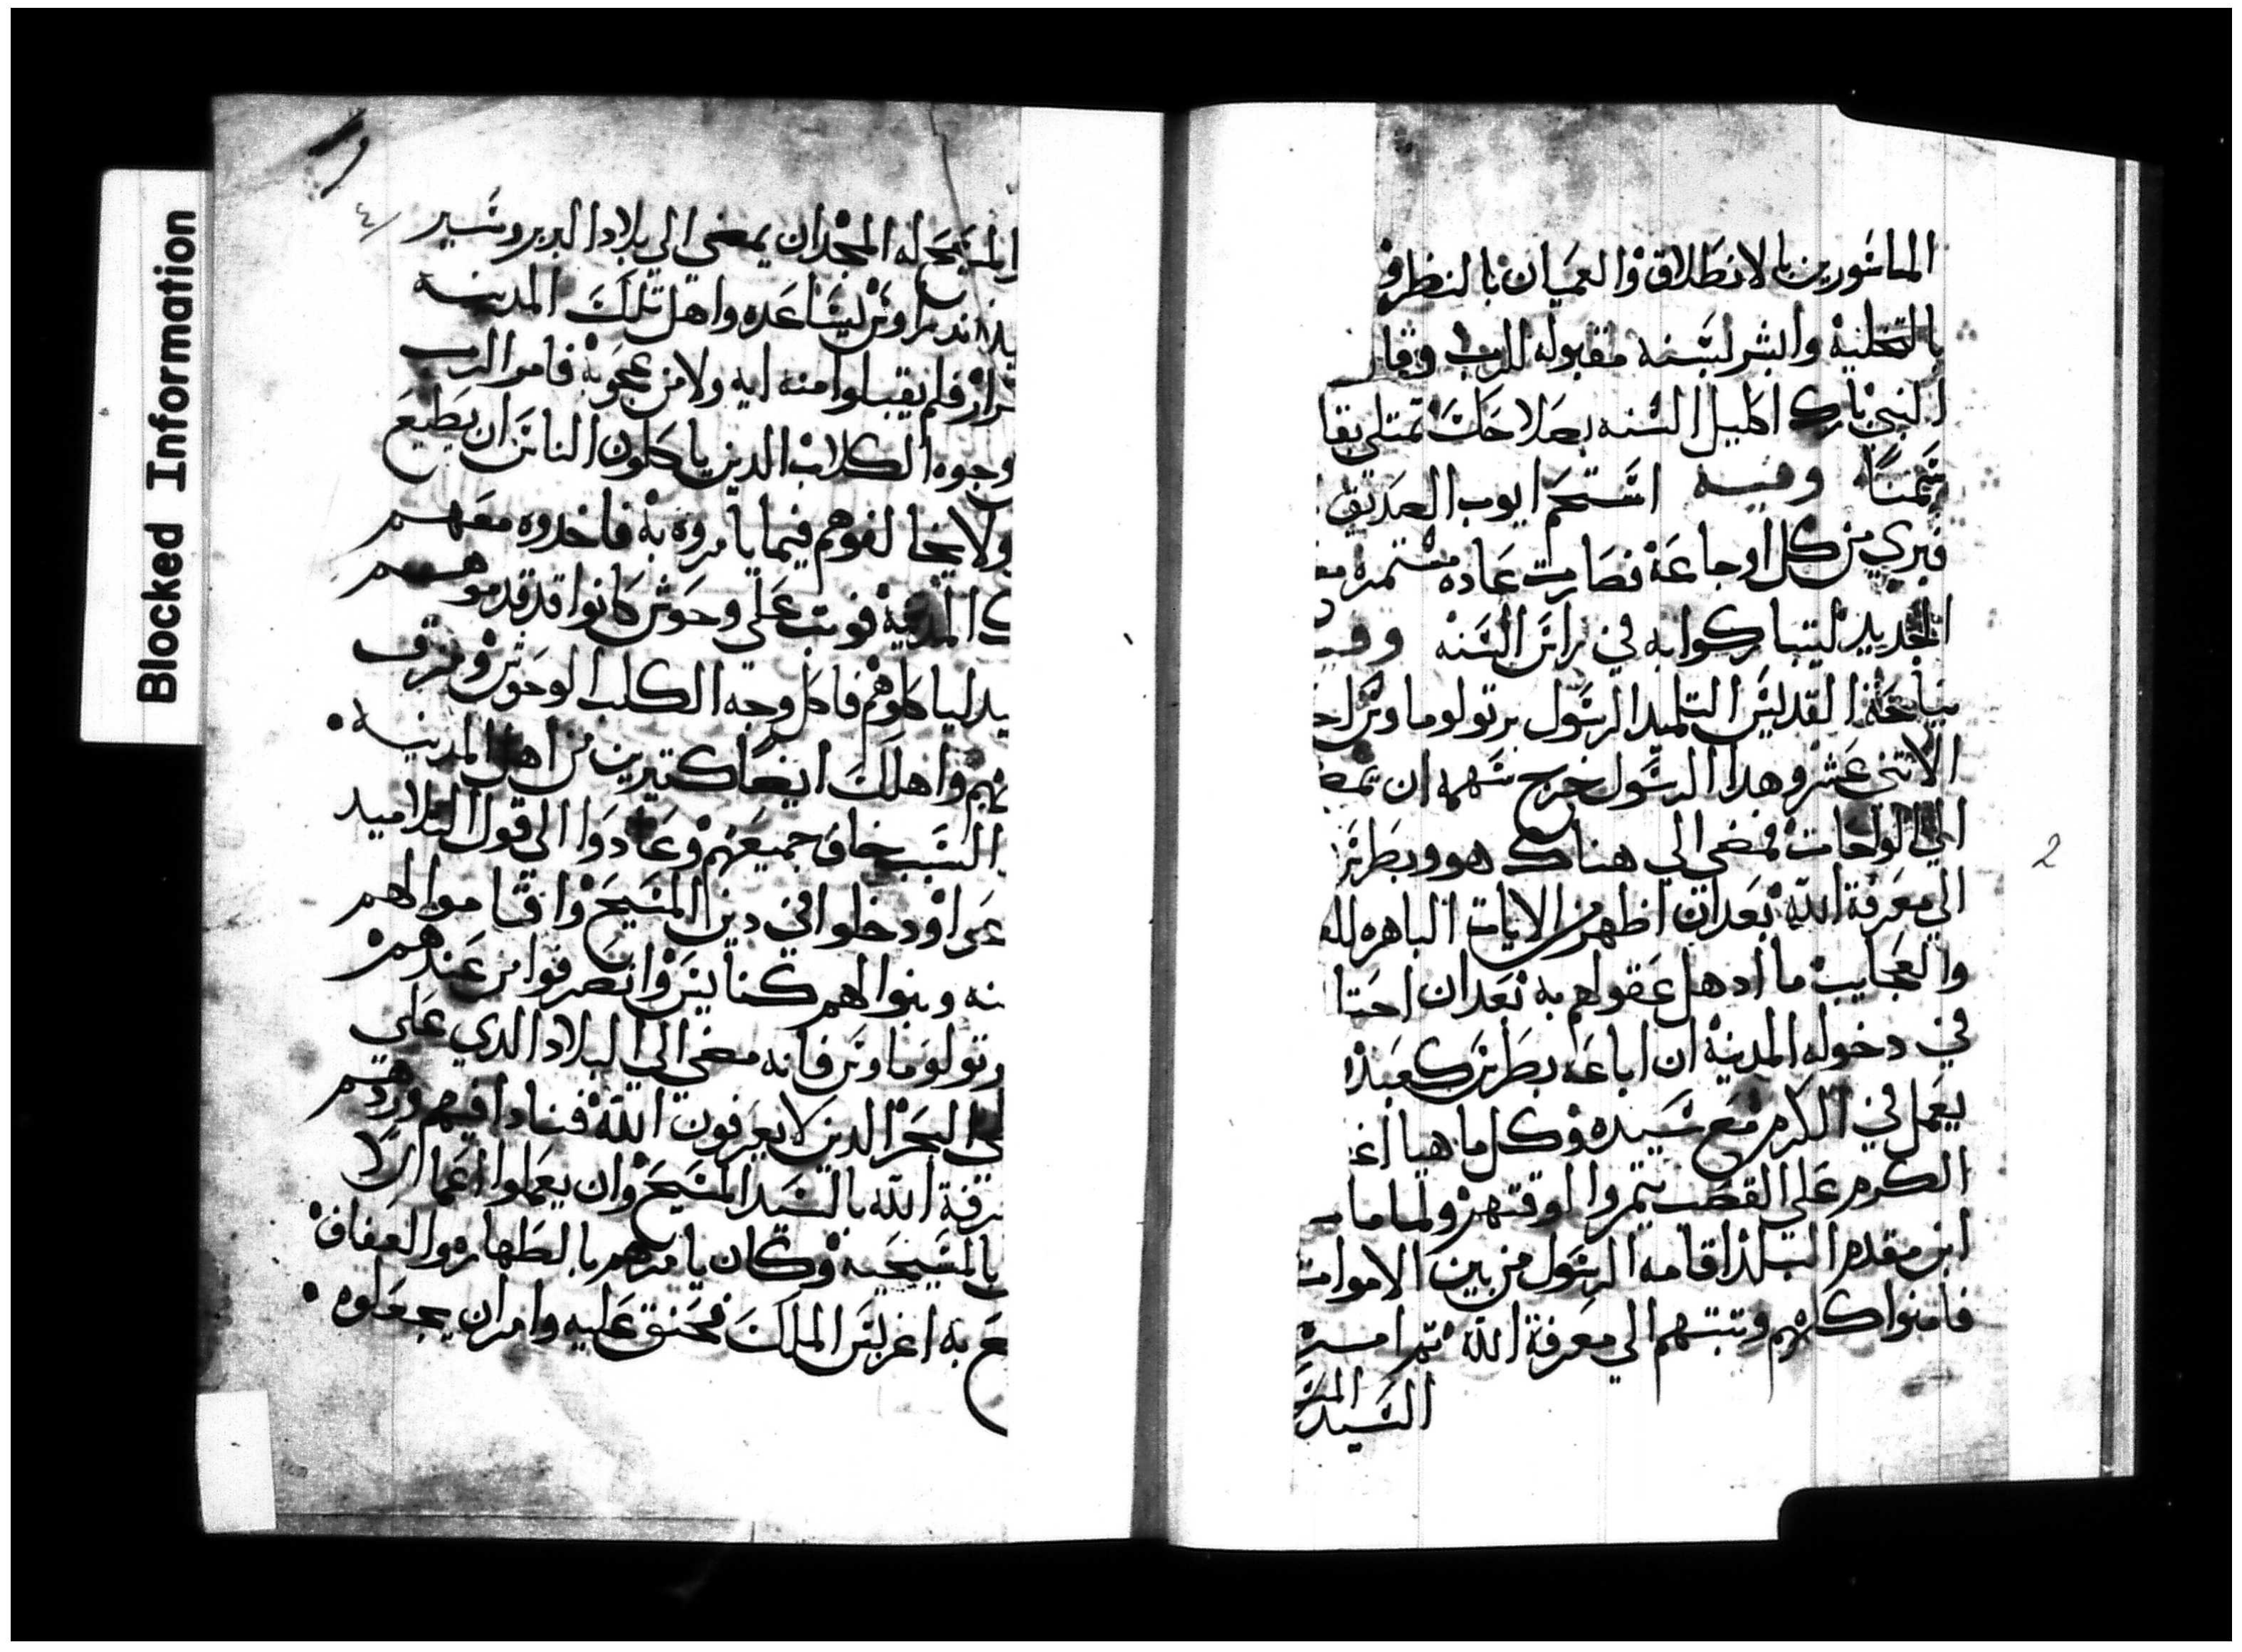 الماسورين بالانطلاق والعميان بالنظر و
بالتخلية وابشر بسنه مقبوله للرب وقال
النبي بارك اكليل السنه بصلاحك تمتلي بقا
وفيه استحم ايوب الصديق
فبري من كل اوجاعه فصارت عاده مستمره
الجديد ليتباركوا به في راس السنه وفيه
نياحة القديس التلميد الرسول برتولوماوس احد
الاتني عشر وهدا الرسول خرج سهمه ان يمض
الي الواحات فمضي الي هناك هو وبطرس
الي معرفة الله بعد ان اظهر من الايات الباهره
والعجايب ما ادهل عقولهم به بعد ان احتا
في دخوله المدينة ان اباعه بطرس كعبد
يعمل في الكرم مع سيده وكل ما هيا اغ
الكرم علي القصب يتمروا لوقتهم ولما مات
ابن مقدم البلد اقامه الرسول من بين الاموات
فامنوا كلهم وتبتهم الي معرفة الله تم امره
السيد المس
2
المسيح له المجد ان يمضي الي بلاد البربر وسير
اندراوس ليساعده واهل تلك المدينه
فلم يقبلوا منه ايه ولا من عجوبة فامر الرب
وجوه الكلاب الدين ياكلون الناس ان يطيع
ولا يخالفوهم فيما يامروه به فاخدوه معهم
المدينة فوتب علي وحوش كانوا قد قدموهم
لياكلوهم فاكل وجه الكلب الوحوش ومزق
واهلك ايضا كتيرين من اهل المدينه
السبب خاف جميعهم وعادوا الي قول التلاميد
ودخلوا في دين المسيح واقاموا لهم
وبنوا لهم كنايس وانصرفوا من عندهم
رتولوماوس فانه مضي الي البلاد الدي علي
البحر الدين لا يعرفون الله فنادا فيهم وردهم
رفة الله بالسيد المسيح وان يعملوا اعمالا
بالمسيحيه وكان يامرهم بالطهاره والعفاف
ع به اغريبس الملك فحنق عليه وامر ان يجعلوه
Blocked Information